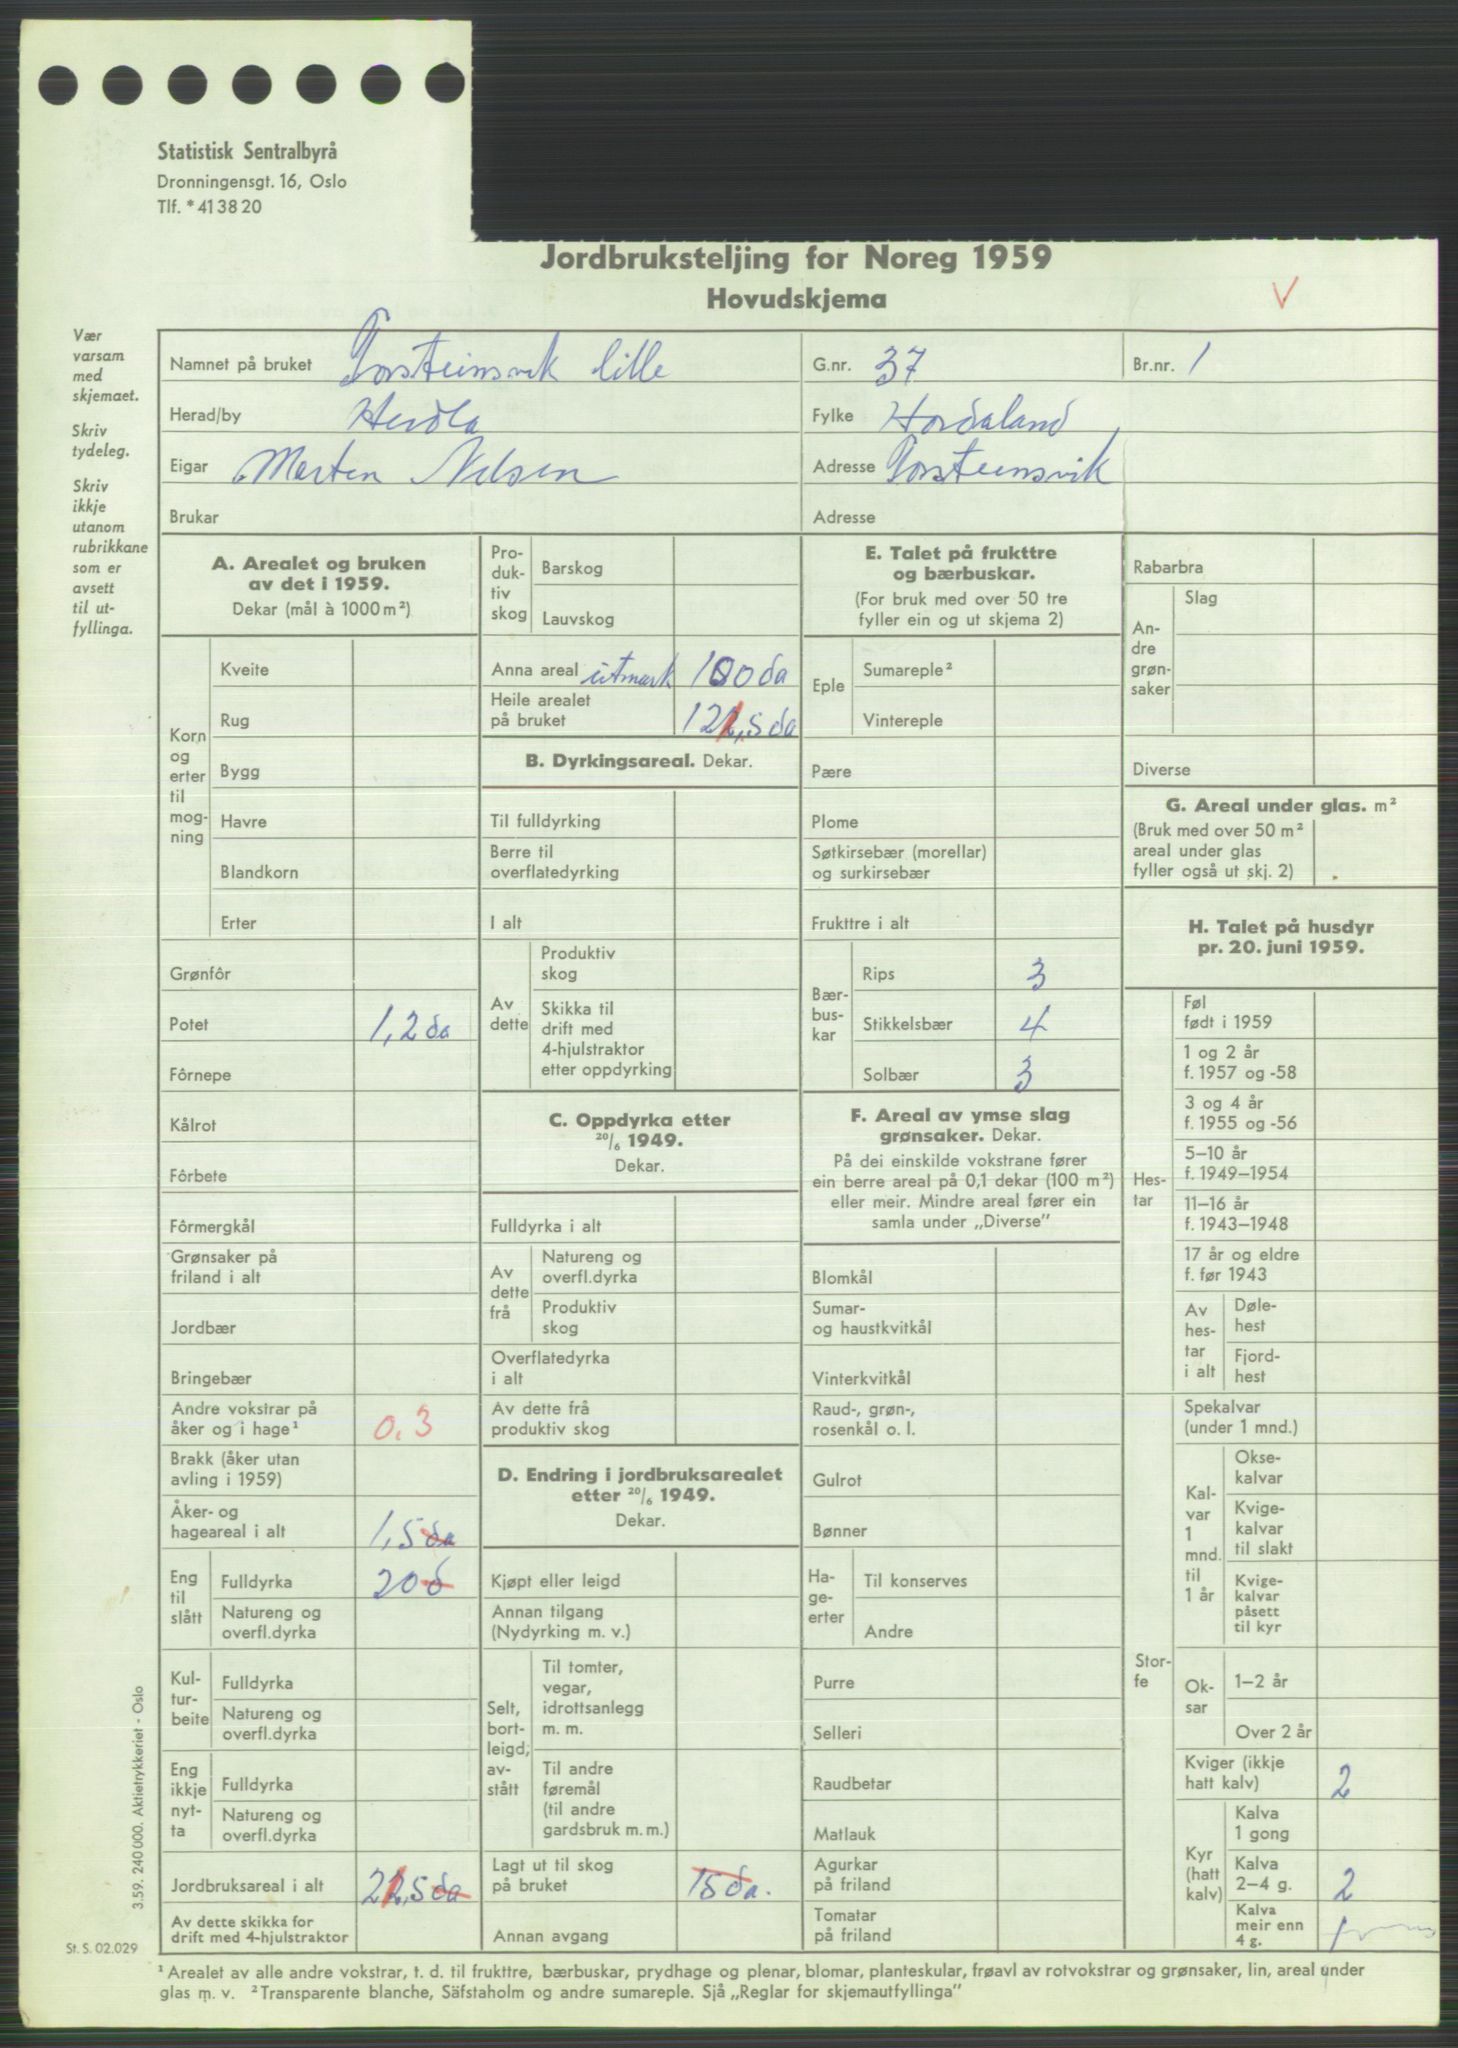 Statistisk Sentralbyrå
Dronningensgt. 16, Oslo
Tlf. * 41 38 20
Jordbruksteljing for Noreg 1959
Hovudskjema
V
Vær
varsam
med
skjemaet.
Skriv
tydeleg.
Skriv
ikkje
utanom
rubrikkane
som er
avsett
til ut-
fyllinga.
Namnet på bruket Torsteinsvik lille
G.nr. 37
Br.nr. 1
Herad/by Herdla
Fylke Hordaland
Eigar Marten Nelsen
Adresse Torsteinsvik
Brukar
Adresse
A. Arealet og bruken
av det i 1959.
Dekar (mål à 1000 m²)
Korn
og
erter
til
mog-
ning
Kveite
Rug
Bygg
Havre
Blandkorn
Erter
Grønfôr
Potet 1,2 da
Fôrnepe
Kålrot
Fôrbete
Fôrmergkål
Grønsaker på
friland i alt
Jordbær
Bringebær
Andre vokstrar på
åker og i hage¹ 0.3
Brakk (åker utan
avling i 1959)
Åker- og
hageareal i alt 1,5 da
Eng
til
slått
Fulldyrka 20 d
Natureng og
overfl.dyrka
Kul-
tur-
beite
Fulldyrka
Natureng og
overfl.dyrka
Eng
ikkje
nyt-
ta
Fulldyrka
Natureng og
overfl.dyrka
Jordbruksareal i alt 21,5 da
Av dette skikka for
drift med 4-hjulstraktor
Pro-
duk-
tiv
skog
Barskog
Lauvskog
Anna areal utmark 100 da
Heile arealet
på bruket 121,5 da
B. Dyrkingsareal. Dekar.
Til fulldyrking
Berre til
overflatedyrking
I alt
Av
dette
Produktiv
skog
Skikka til
drift med
4-hjulstraktor
etter oppdyrking
C. Oppdyrka etter
20/6 1949.
Dekar.
Fulldyrka i alt
Av
dette
frå
Natureng og
overfl.dyrka
Produktiv
skog
Overflatedyrka
i alt
Av dette frå
produktiv skog
D. Endring i jordbruksarealet
etter 20/6 1949.
Dekar.
Kjøpt eller leigd
Annan tilgang
(Nydyrking m. v.)
Selt,
bort-
leigd,
av-
stått
Til tomter,
vegar,
idrottsanlegg
m. m.
Til andre
føremål
(til andre
gardsbruk m. m.)
Lagt ut til skog
på bruket 15 da.
Annan avgang
E. Talet på frukttre
og bærbuskar.
(For bruk med over 50 tre
fyller ein og ut skjema 2)
Eple
Sumareple²
Vintereple
Pære
Plome
Søtkirsebær (morellar)
og surkirsebær
Frukttre i alt
Bær-
bus-
kar
Rips 3
Stikkelsbær 4
Solbær 3
F. Areal av ymse slag
grønsaker. Dekar.
På dei einskilde vokstrane fører
ein berre areal på 0,1 dekar (100 m²)
eller meir. Mindre areal fører ein
samla under „Diverse”
Blomkål
Sumar-
og haustkvitkål
Vinterkvitkål
Raud-, grøn-,
rosenkål o. l.
Gulrot
Bønner
Ha-
ge-
erter
Til konserves
Andre
Purre
Selleri
Raudbetar
Matlauk
Agurkar
på friland
Tomatar
på friland
Rabarbra
An-
dre
grøn-
saker
Slag
Diverse
G. Areal under glas. m²
(Bruk med over 50 m²
areal under glas
fyller også ut skj. 2)
H. Talet på husdyr
pr. 20. juni 1959.
Hes-
tar
Føl
født i 1959
1 og 2 år
f. 1957 og -58
3 og 4 år
f. 1955 og -56
5–10 år
f. 1949–1954
11–16 år
f. 1943–1948
17 år og eldre
f. før 1943
Av
hes-
tar
i alt
Døle-
hest
Fjord-
hest
Stor-
fe
Spekalvar
(under 1 mnd.)
Kal-
var
1
mnd.
til
1 år
Okse-
kalvar
Kvige-
kalvar
til slakt
Kvige-
kalvar
påsett
til kyr
Ok-
sar
1–2 år
Over 2 år
Kviger (ikkje
hatt kalv) 2
Kyr
(hatt
kalv)
Kalva
1 gong
Kalva
2–4 g. 2
Kalva
meir enn
4 g. 1
3.59. 240 000. Aktietrykkeriet - Oslo
St. S. 02.029
¹ Arealet av alle andre vokstrar, t. d. til frukttre, bærbuskar, prydhage og plenar, blomar, planteskular, frøavl av rotvokstrar og grønsaker, lin, areal under
glas m. v. ² Transparente blanche, Säfstaholm og andre sumareple. Sjå „Reglar for skjemautfyllinga”